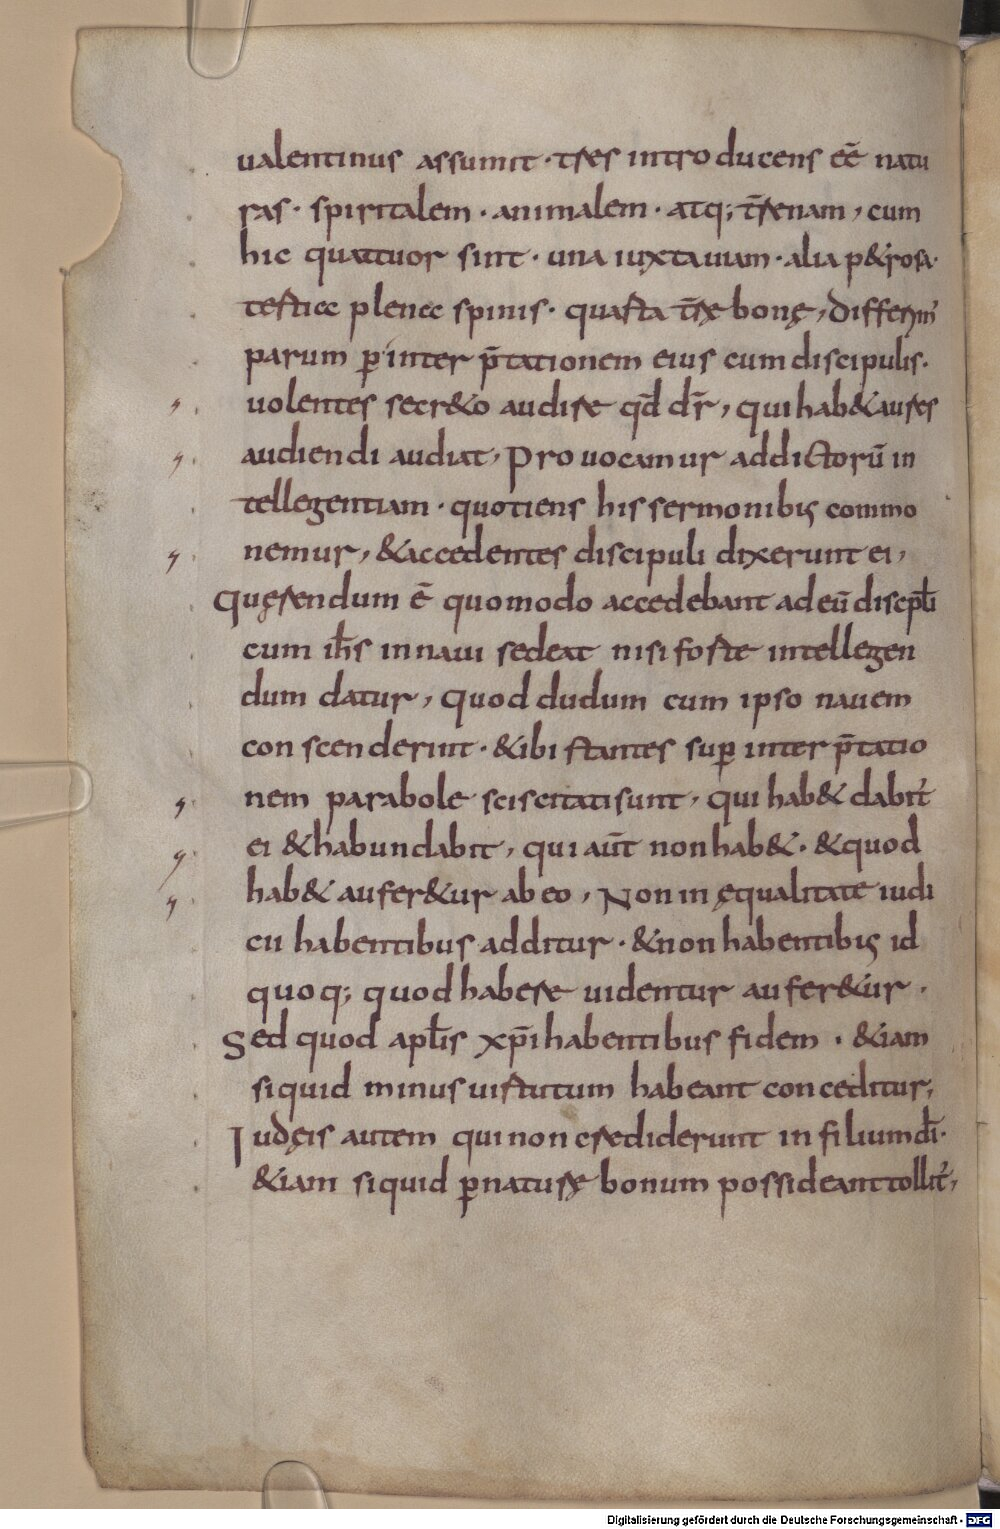 ualentinus assumit · tres introducens eē natu
ras · spiritalem · animalem · atq; t̄renam, cum
hic quattuor sint · una iuxta uiam · alia p&rosa·
tertia plena spinis · quarta t̄rę bonę, differim̄
parum ꝑ inter p̄tationem eius cum discipulis·
uolentes secr&o audire qd̄ dr̄, qui hab& aures
audiendi audiat, Prouocamur ad dictorū in
tellegentiam · quotiens his sermonibꝫ commo
nemur, &accedentes discipuli dixerunt ei,
Quęrendum ē quomodo accedebant ad eū discpłi
cum ih̄s in naui sedeat nisi forte intellegen
dum datur, quod dudum cum ipso nauem
conscenderint · &ibi stantes suꝑ inter p̄tatio
nem parabole sciscitati sunt, qui hab& dabit̄
ei &habundabit, qui aūt non hab& · &quod
hab& aufer&ur ab eo, Non in ęqualitate iudi
cii habentibus additur · &non habentibꝫ id
quoq; quod habere uidentur aufer&ur ·
Sed quod apłis xp̄i habentibus fidem · &iam
siquid minus uirtutum habeant conceditur,
Iudęis autem qui non crediderunt in filium dī·
&iam siquid ꝑ naturę bonum possideant tollit̄,
Digitalisierung gefördert durch die Deutsche Forschungsgemeinschaft - DFG